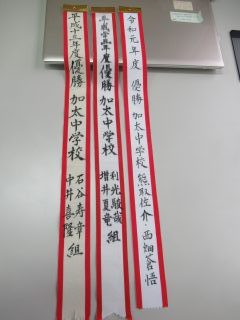 令和元年度 優勝 加太中学校 熊取佐介・西畑蒼悟
平成十五年度優勝 加太中学校
利光駿哉
増井夏竜
組
平成十三年度優勝 加太中学校
石谷寿章
中井喜隆
組